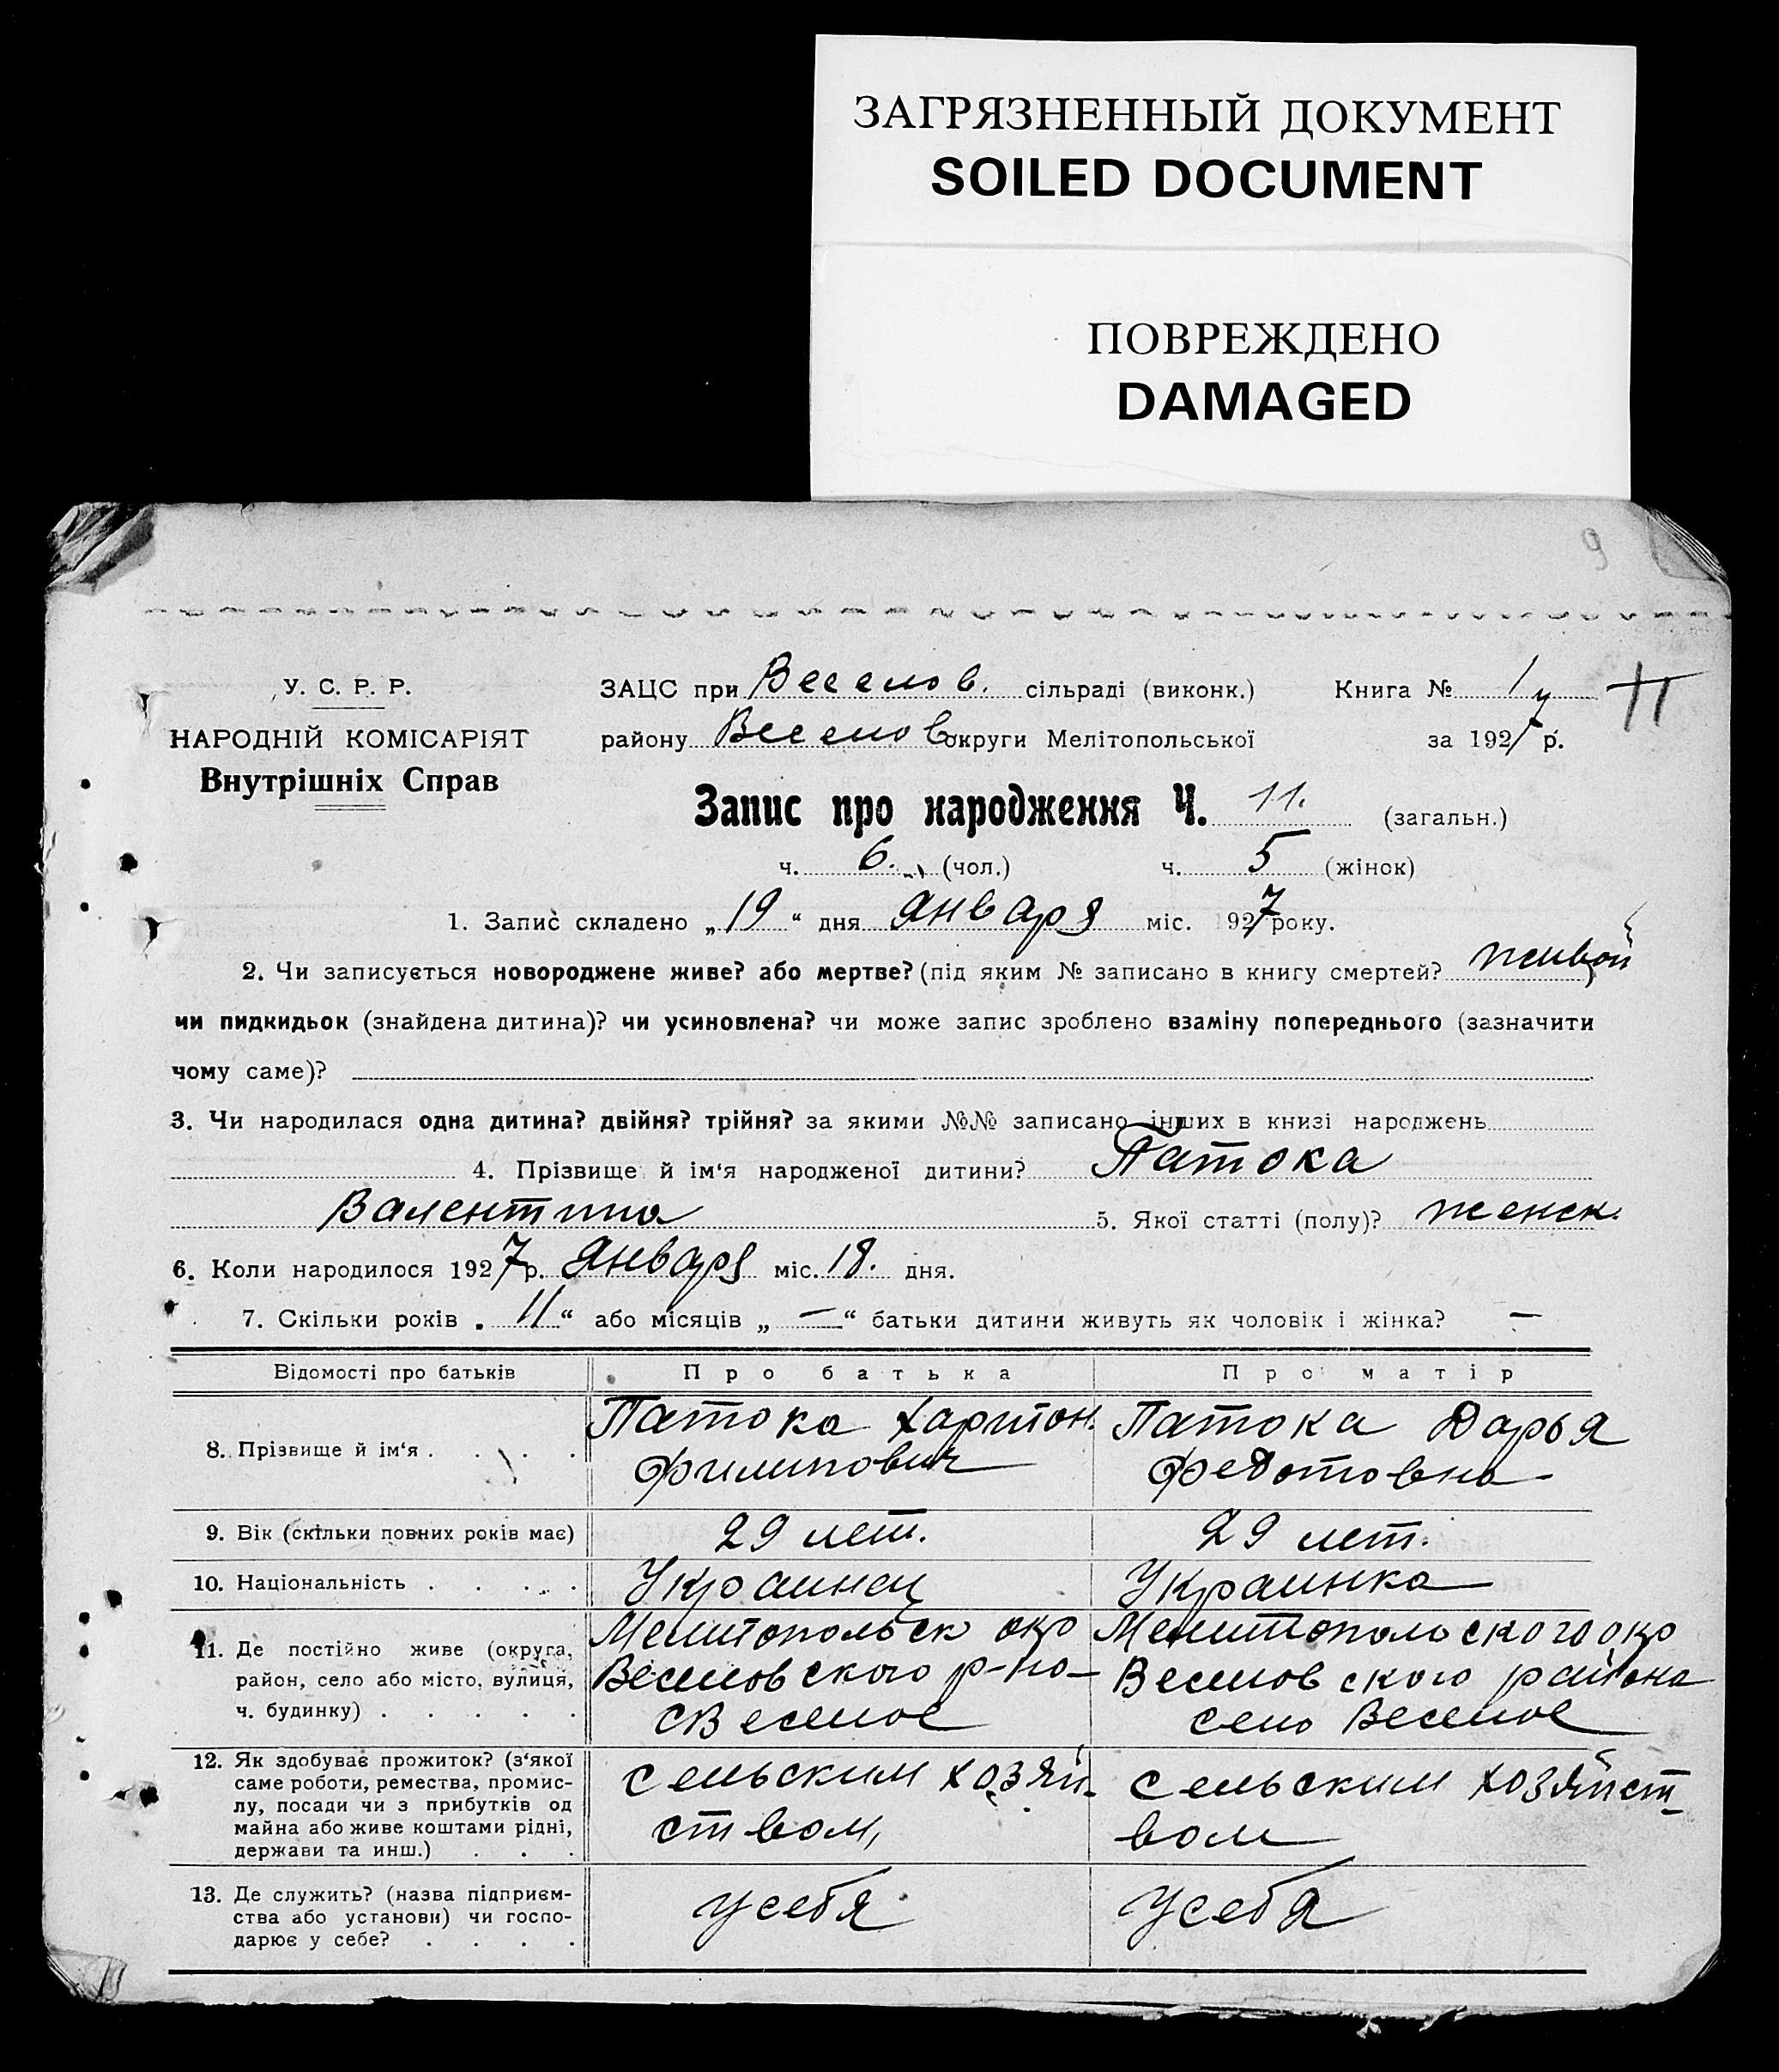 ЗАГРЯЗНЕННЫЙ ДОКУМЕНТ
SOILED DOCUMENT
ПОВРЕЖДЕНО
DAMAGED
9
У. С. Р. Р.
ЗАЦС при Веселов. сільраді (виконк.) Книга № 1
НАРОДНІЙ КОМІСАРІЯТ
району Веселов округи Мелітопольської за 1927 р.
Внутрішніх Справ
Запис про народження Ч. 11. (загальн.)
ч. 6. (чол.) ч. 5 (жінок)
1. Запис складено „19“ дня Января міс. 1927 року.
2. Чи записується новороджене живе? або мертве? (під яким № записано в книгу смертей? живой)
чи пидкидьок (знайдена дитина)? чи усиновлена? чи може запис зроблено взаміну попереднього (зазначити
чому саме)?
3. Чи народилася одна дитина? двійня? трійня? за якими №№ записано інших в книзі народжень
4. Прізвище й ім‘я народженої дитини? Патока
Валентина 5. Якої статті (полу)? женск.
6. Коли народилося 1927 р. Января міс. 18. дня.
7. Скільки років „11“ або місяців „—“ батьки дитини живуть як чоловік і жінка? —
Відомості про батьків Про батька Про матір
8. Прізвище й ім‘я . . . . Патока Харитон. Патока Дарья
Филипович Федотовна
9. Вік (скільки повних років має) 29 лет. 29 лет.
10. Національність . . . . Украинец Украинка
11. Де постійно живе (округа, Мелитопольск окр Мелитопольского окр
район, село або місто, вулиця, Веселовского р-на Веселовского района
ч. будинку) . . . . . с Веселое село Веселое
12. Як здобуває прожиток? (з‘якої
саме роботи, ремества, промис- сельским хозяй- сельским хозяйст-
лу, посади чи з прибутків од
майна або живе коштами рідні, ством, вом
держави та инш.) . . .
13. Де служить? (назва підприєм-
ства або установи) чи госпо- у себя у себя
дарює у себе? . . . .